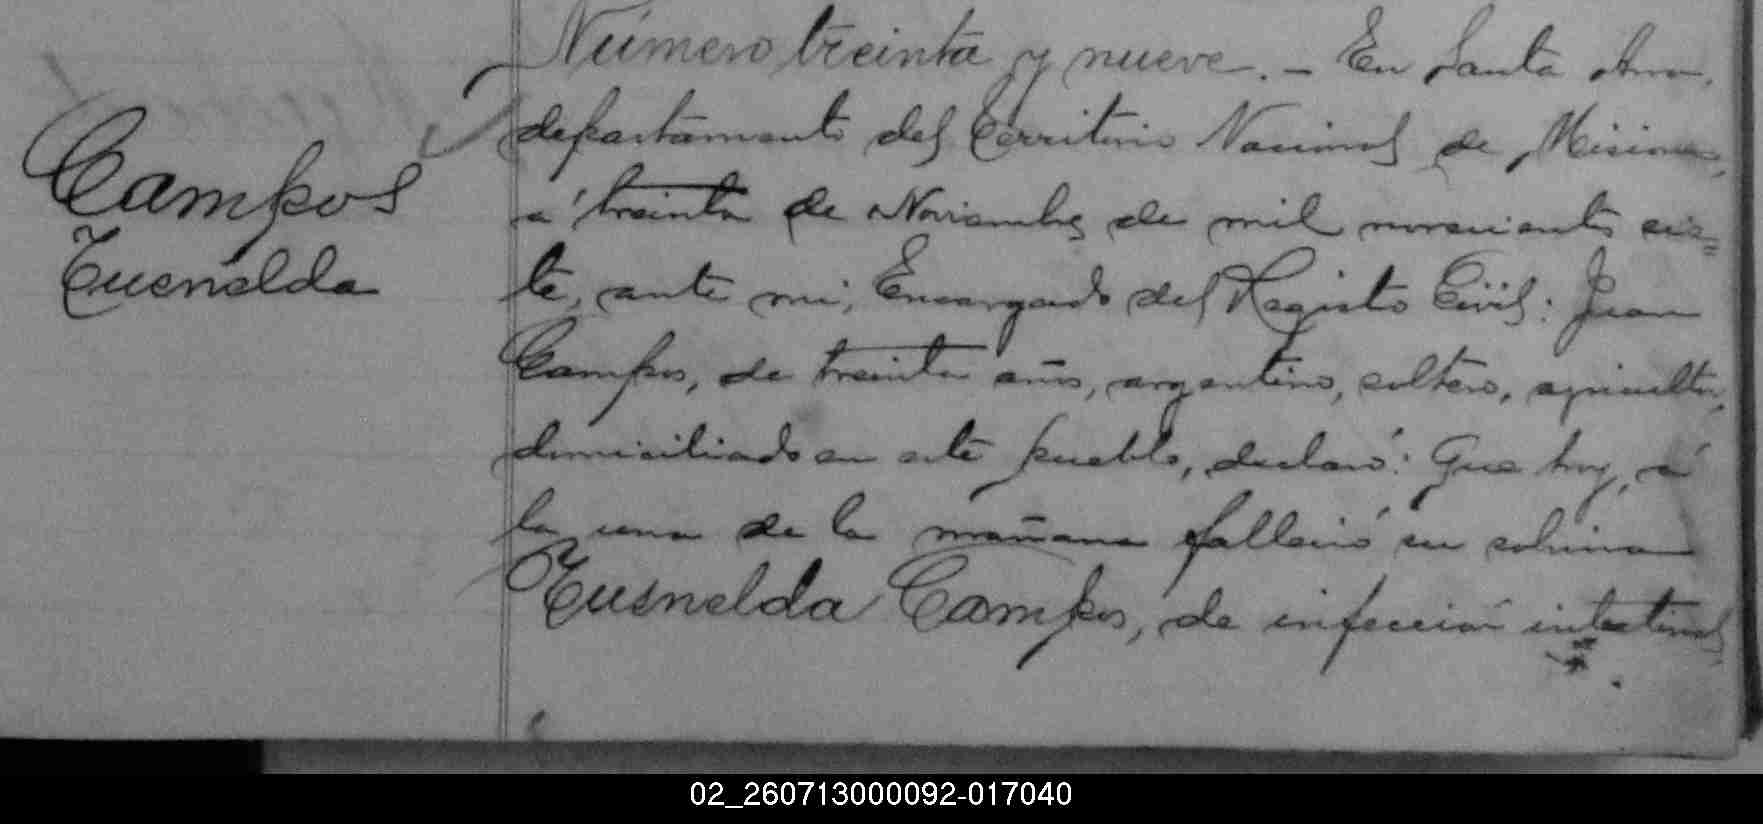 Campos
Tusnelda
Número treinta y nueve. – En Santa Ana,
departamento del Territorio Nacional de Misiones,
a' treinta de Noviembre de mil novecientos sie=
te, ante mi, Encargado del Registro Civil: Juan
Campos, de treinta años, argentino, soltero, agricultor,
domiciliado en este pueblo, declaró: Que hoy, á
la una de la mañana falleció su sobrina
Tusnelda Campos, de infección intestinal
02_260713000092-017040